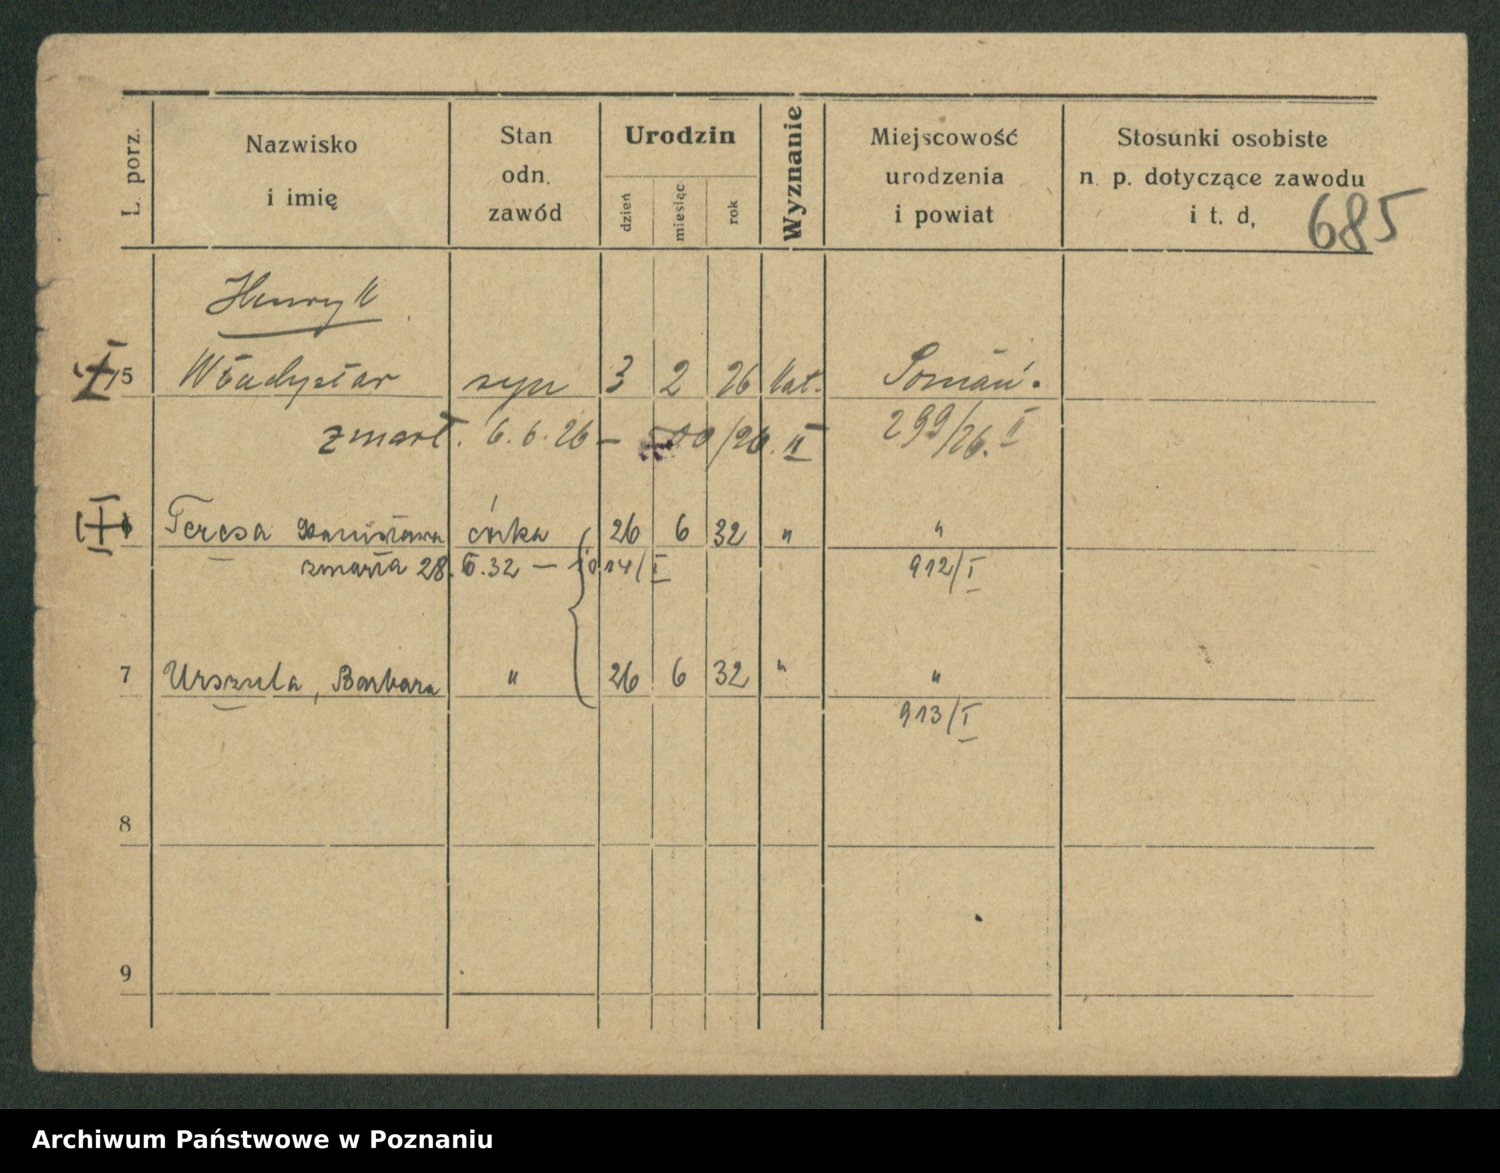 L. porz.
Nazwisko
i imię
Stan
odn.
zawód
Urodzin
dzień
miesiąc
rok
Wyznanie
Miejscowość
urodzenia
i powiat
Stosunki osobiste
n. p. dotyczące zawodu
i t. d,
685
Henryk
5 Władysław syn 3 2 26 kat. Poznań.
zmarł. 6.6.26 – 500/26. II 299/26. II
6 Teresa Stanisława córka 26 6 32 " "
zmarła 28.6.32 — 1014/I 912/I
7 Urszula, Barbara " 26 6 32 " "
913/I
8
9
Archiwum Państwowe w Poznaniu